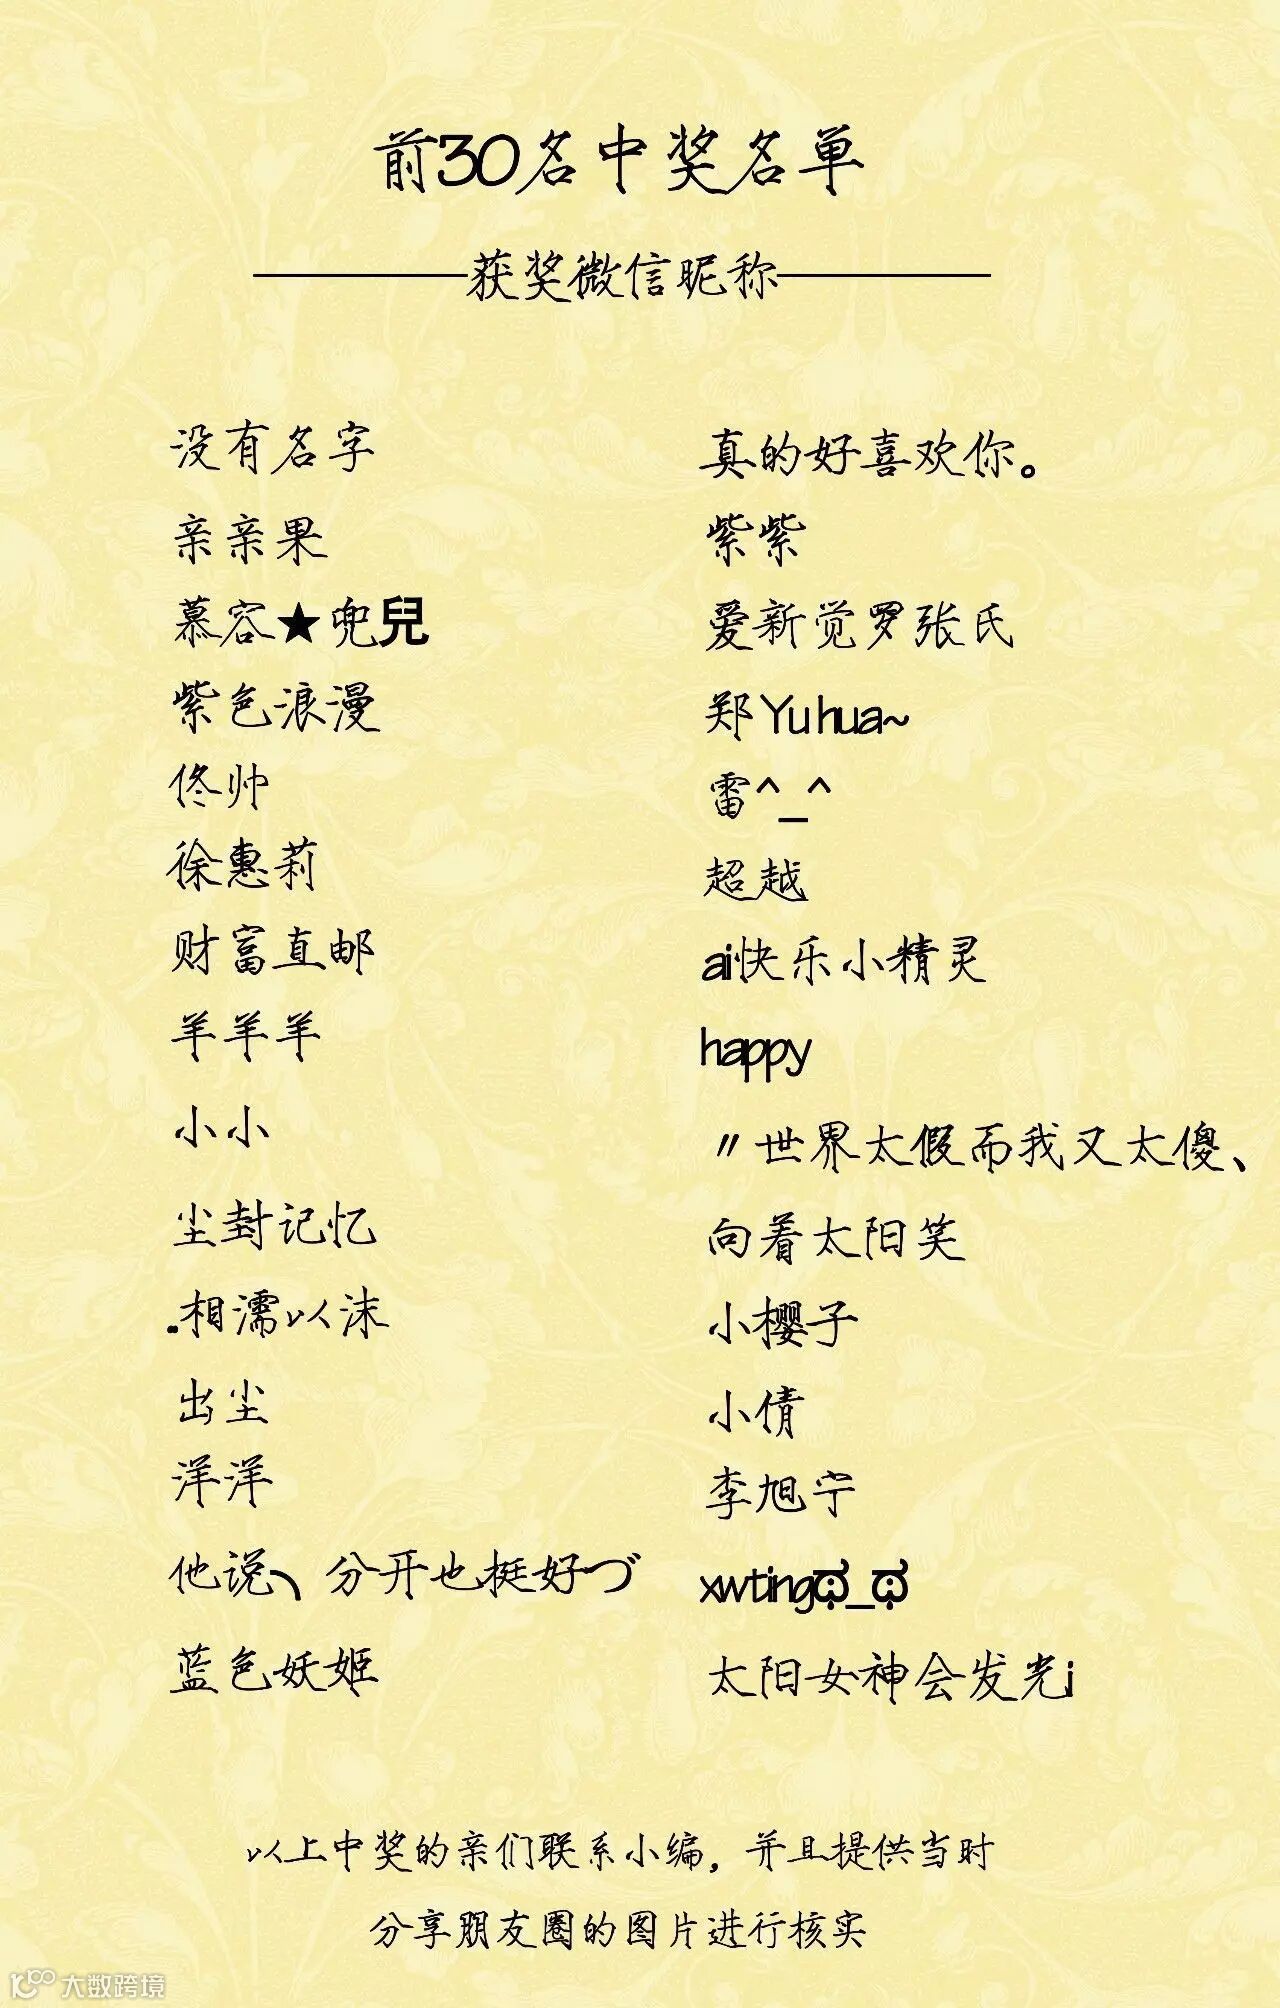 前30名中奖名单
获奖微信昵称
没有名字
亲亲果
慕容★兜兒
紫色浪漫
佟帅
徐惠莉
财富直邮
羊羊羊
小小
尘封记忆
..相濡以沫
出尘
洋洋
他说ヽ分开也挺好づ
蓝色妖姬
真的好喜欢你。
紫紫
爱新觉罗张氏
郑Yuhua~
雷^_^
超越
ai快乐小精灵
happy
〃世界太假而我又太傻、
向着太阳笑
小樱子
小倩
李旭宁
xwtingಥ_ಥ
太阳女神会发光i
以上中奖的亲们联系小编，并且提供当时
分享朋友圈的图片进行核实
大数跨境